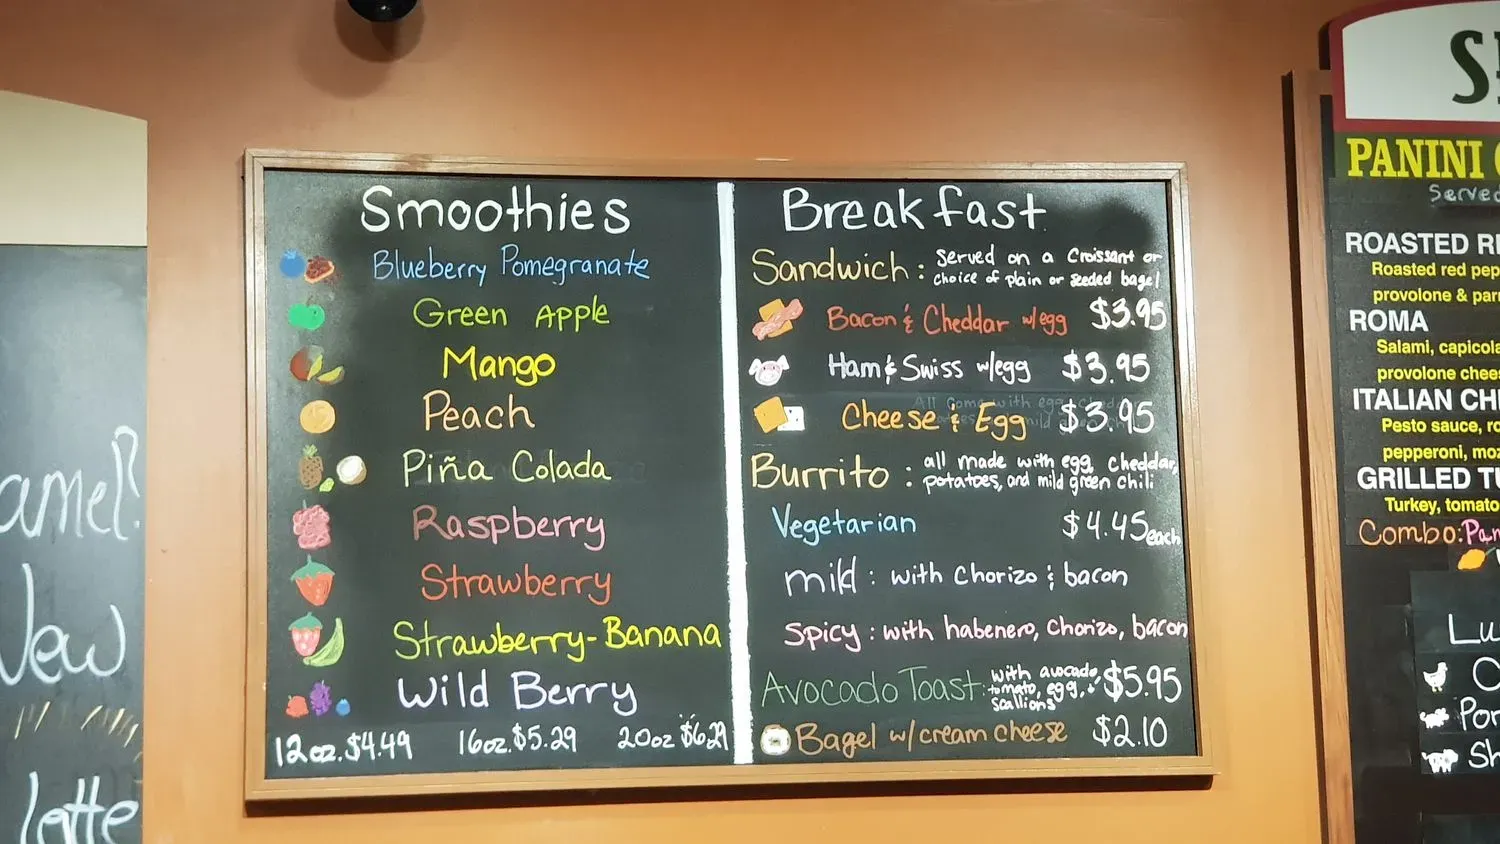 Smoothies
Blueberry Pomegranate
Green Apple
Mango
Peach
Piña Colada
Raspberry
Strawberry
Strawberry-Banana
Wild Berry
12oz. $4.49 16oz. $5.29 20oz $6.29
Breakfast
Sandwich: Served on a Croissant or
choice of plain or seeded bagel
Bacon & Cheddar w/egg $3.95
Ham & Swiss w/egg $3.95
Cheese & Egg $3.95
Burrito: all made with egg, cheddar,
potatoes, and mild green chili
Vegetarian $4.45 each
mild: with Chorizo & bacon
Spicy: with habenero, chorizo, bacon
Avocado Toast: with avocado,
tomato, egg, +
scallions $5.95
Bagel w/cream cheese $2.10
PANINI
Served
ROASTED
Roasted red
provolone &
ROMA
Salami,
provolone
ITALIAN
Pesto sauce,
pepperoni,
GRILLED
Turkey, tomato
Combo:
New
latte